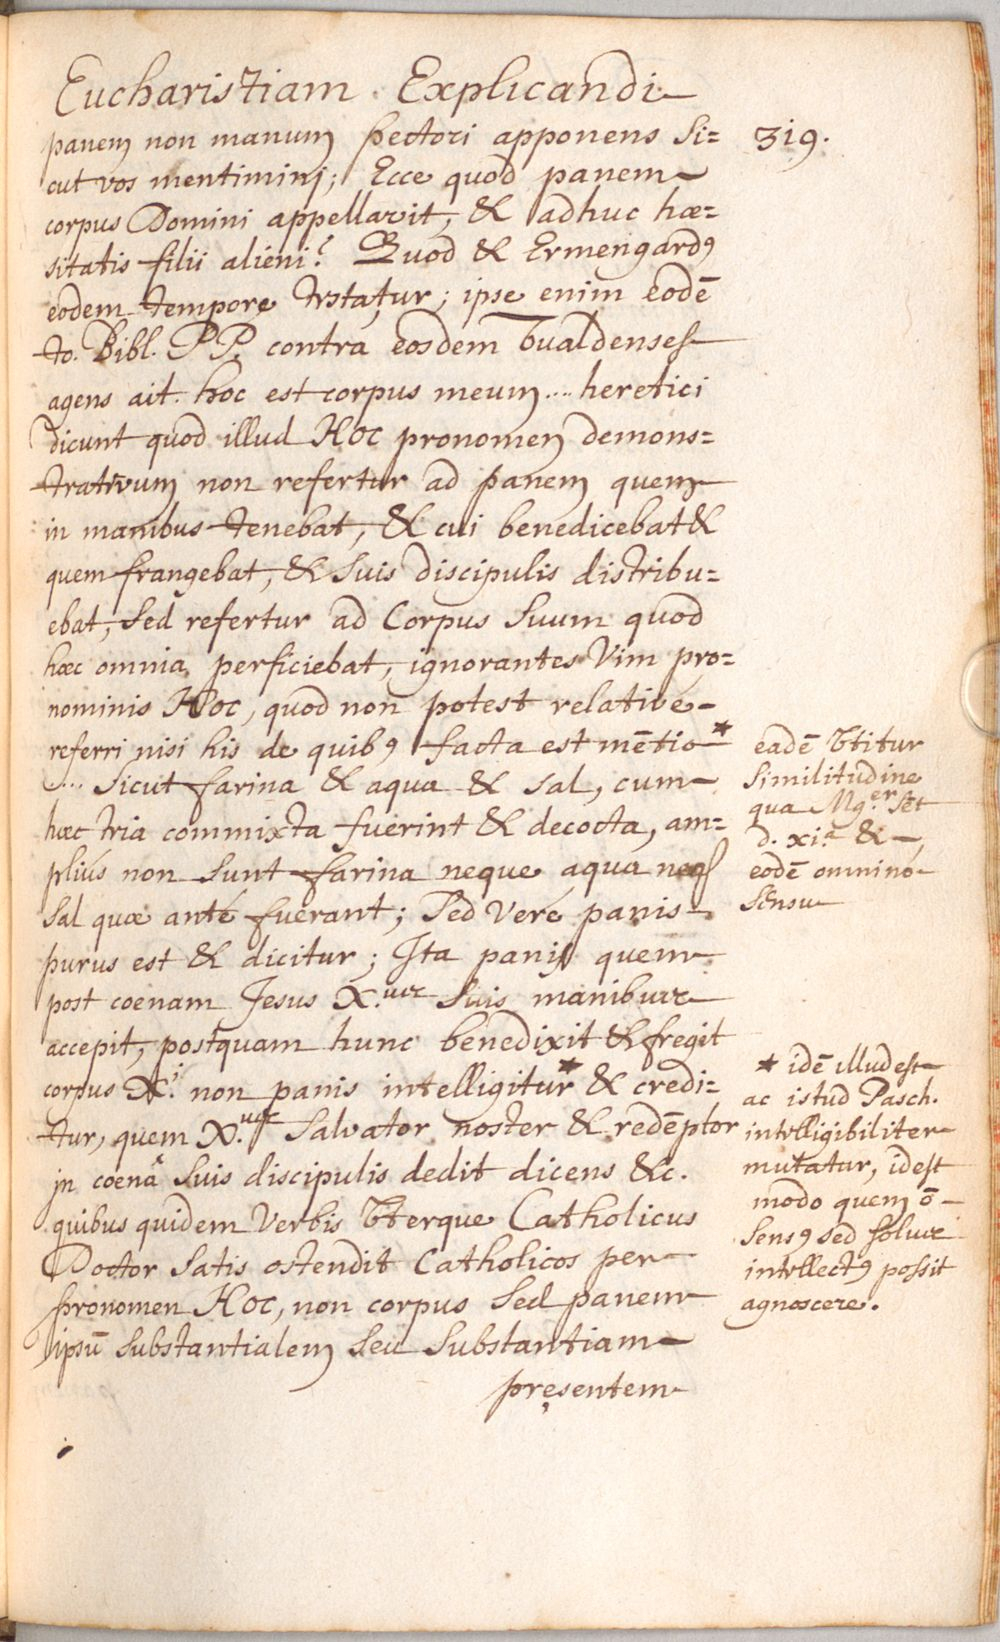 Eucharistiam Explicandi
panem non manum pectori apponens si=
319.
cut vos mentimini; Ecce quod panem
corpus Domini appellavit, & adhuc hæ=
sitatis filii alieni? Quod & Ermengardꝰ
eodem tempore trstatur; ipse enim eodē
to. Bibl. PP. contra eosdem Vualdenses
agens ait. hoc est corpus meum .... heretici
dicunt quod illud Hoc pronomen demons=
trativum non refertur ad panem quem
in manibus tenebat, & cui benedicebat &
quem frangebat, & suis discipulis distribu=
ebat, sed refertur ad Corpus suum quod
hæc omnia perficiebat, ignorantes Vim pro=
nominis Hoc, quod non potest relativé
referri nisi his de quibꝰ facta est mētio *
.... sicut farina & aqua & sal, cum
hæc tria commixta fuerint & decocta, am=
pliús non sunt farina neque aqua neq
sal quæ anté fuerant; sed veré panis
purus est & dicitur; Ita panis quem
post coenam Jesus X.us suis manibus
accepit, postquam hunc benedixit & fregit
corpus X.i non panis intelligitur * & credi=
tur, quem X.us Salvator noster & redēptor
in coenâ suis discipulis dedit dicens &c.
quibus quidem Verbis Vterque Catholicus
Doctor satis ostendit Catholicos per
pronomen Hoc, non corpus sed panem
ipsū substantialem seu substantiam
pręsentem
eadē Vtitur
similitudine
qua Mg.er sēt
d. xi.a &
eodē omninó
sēnsu
* idē illud est
ac istud Pasch.
intelligibiliter
mutatur, idest
modo quem ō
sensꝰ sed solus
intellectꝰ possit
agnoscere.